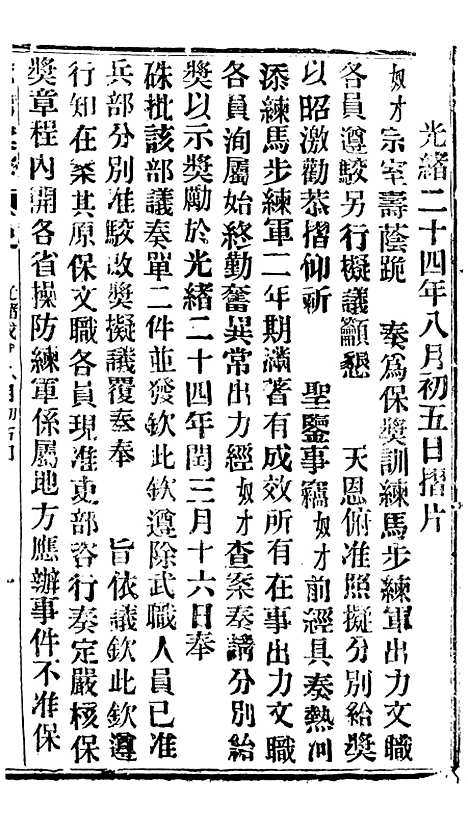 光緒二十四年八月初五日摺片
奴才宗室壽蔭跪 奏為保奬訓練馬步練軍出力文職
各員遵駮另行擬議籲懇 天恩俯准照擬分別給奬
以昭激勸恭摺仰祈 聖鑒事竊奴才前經具奏熱河
添練馬步練軍二年期滿著有成效所有在事出力文職
各員洵屬始終勤奮異常出力經奴才查案奏請分別給
奬以示奬勵於光緒二十四年閏三月十六日奉
硃批該部議奏單二件並發欽此欽遵除武職人員已准
兵部分別准駮改奬擬議覆奏奉 旨依議欽此欽遵
行知在案其原保文職各員現准吏部咨行奏定嚴核保
奬章程內開各省操防練軍係屬地方應辦事件不准保